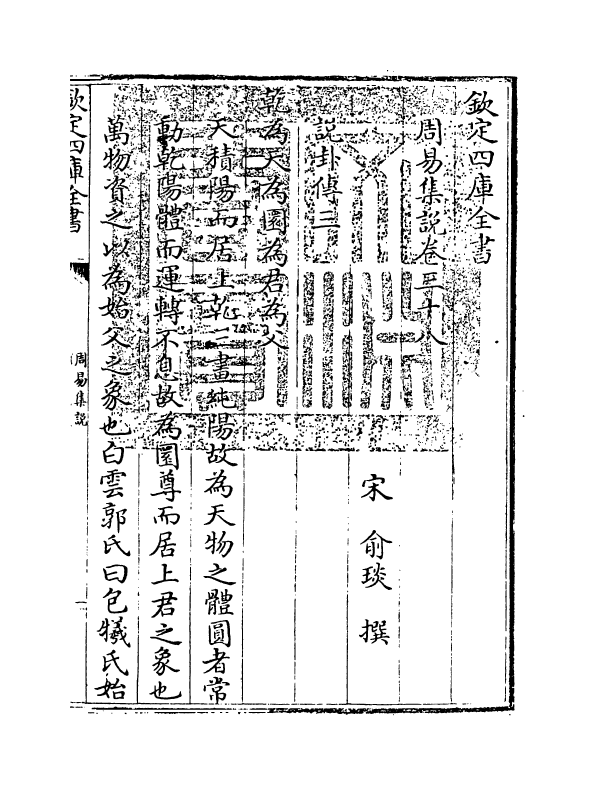 欽定四庫全書
周易集說卷三十八
宋 俞琰 撰
說卦傳三
乾為天為圜為君為父
天積陽而居上乾三畫純陽故為天物之體圓者常
動乾陽體而運轉不息故為圜尊而居上君之象也
萬物資之以為始父之象也白雲郭氏曰包犧氏始
欽定四庫全書
周易集說
一